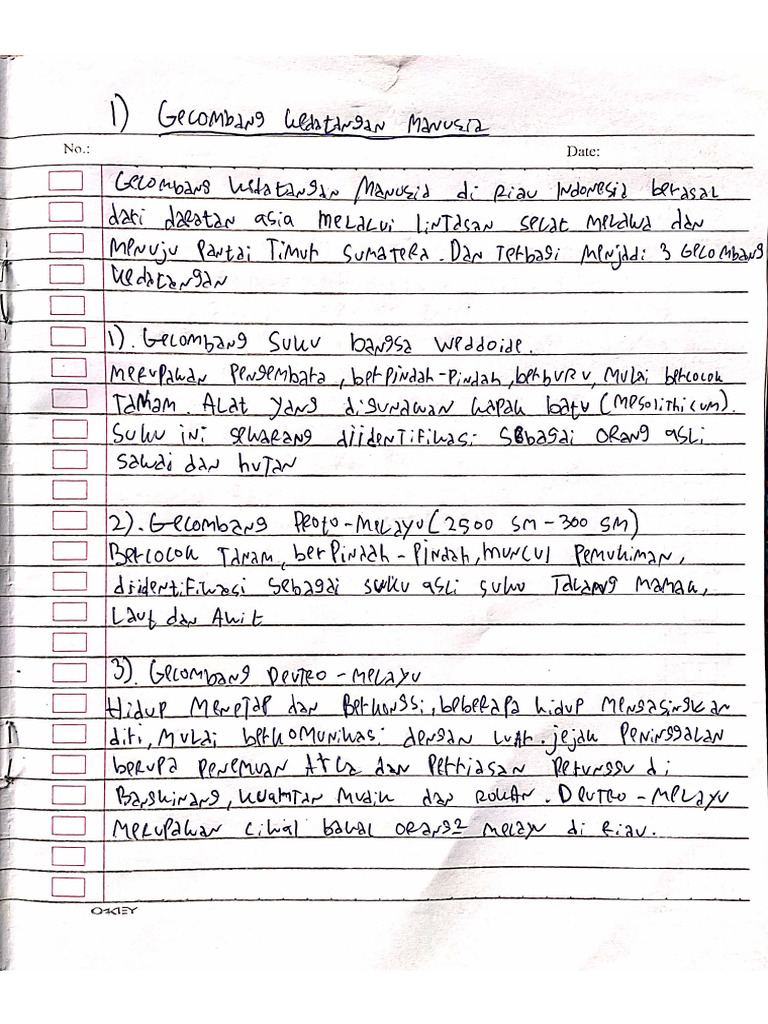 1) Gelombang Kedatangan Manusia
No.:
Date:
Gelombang Kedatangan Manusia di Riau Indonesia berasal
dari daratan asia melalui lintasan selat melaka dan
menuju Pantai Timur Sumatera. Dan terbagi menjadi 3 Gelombang
kedatangan
1). Gelombang Suku bangsa Weddoide.
Merupakan Pengembara, berpindah-pindah, berburu, mulai bercocok
Tamam. Alat yang digunakan kapak batu (Mesolithicum).
Suku ini sekarang diidentifikasi sebagai orang asli
sakai dan hutan
2). Gelombang Proto-Melayu (2500 SM - 300 SM)
Bercocok Tanam, berpindah-pindah, muncul pemukiman,
diidentifikasi sebagai suku asli suku Talang mamak,
Laut dan Akit
3). Gelombang Deutro-Melayu
Hidup Menetap dan Berkongsi, beberapa hidup mengasingkan
diri, mulai berkomunikasi dengan luar. jejak peninggalan
berupa penemuan Arca dan Perhiasan Perunggu di
Bangkinang, kuamtan mudik dan Rokan. Deutro-Melayu
Merupakan cikal bakal orang2 melayu di Riau.
OKEY